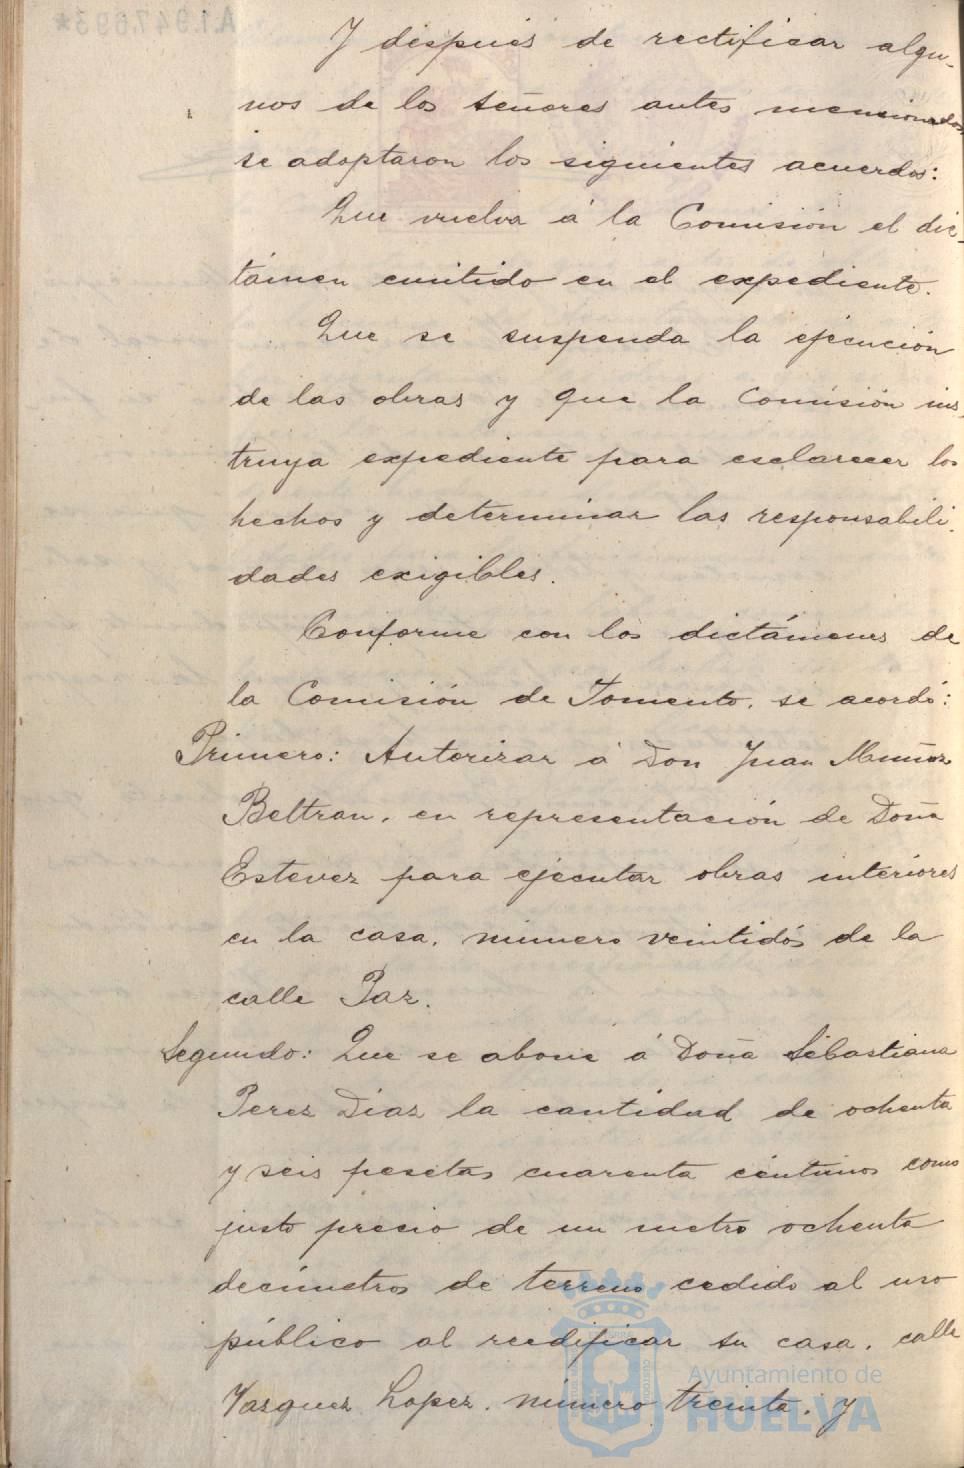 A1.947.693*
Y después de rectificar algu-
nos de los señores antes mencionados,
se adoptaron los siguientes acuerdos:
Que vuelva á la Comisión el dic-
támen emitido en el expediente.
Que se suspenda la ejecución
de las obras y que la Comisión ins-
truya expediente para esclarecer los
hechos y determinar las responsabili-
dades exigibles.
Conforme con los dictámenes de
la Comisión de Fomento, se acordó:
Primero: Autorizar á Don Juan Muñoz
Beltran, en representación de Doña
Estevez para ejecutar obras interiores
en la casa, número veintidós de la
calle Paz.
Segundo: Que se abone á Doña Sebastiana
Perez Diaz la cantidad de ochenta
y seis pesetas cuarenta céntimos como
justo precio de un metro ochenta
decímetros de terreno cedido al uso
público al reedificar su casa, calle
Vazquez Lopez, número treinta, y
Ayuntamiento de
HUELVA